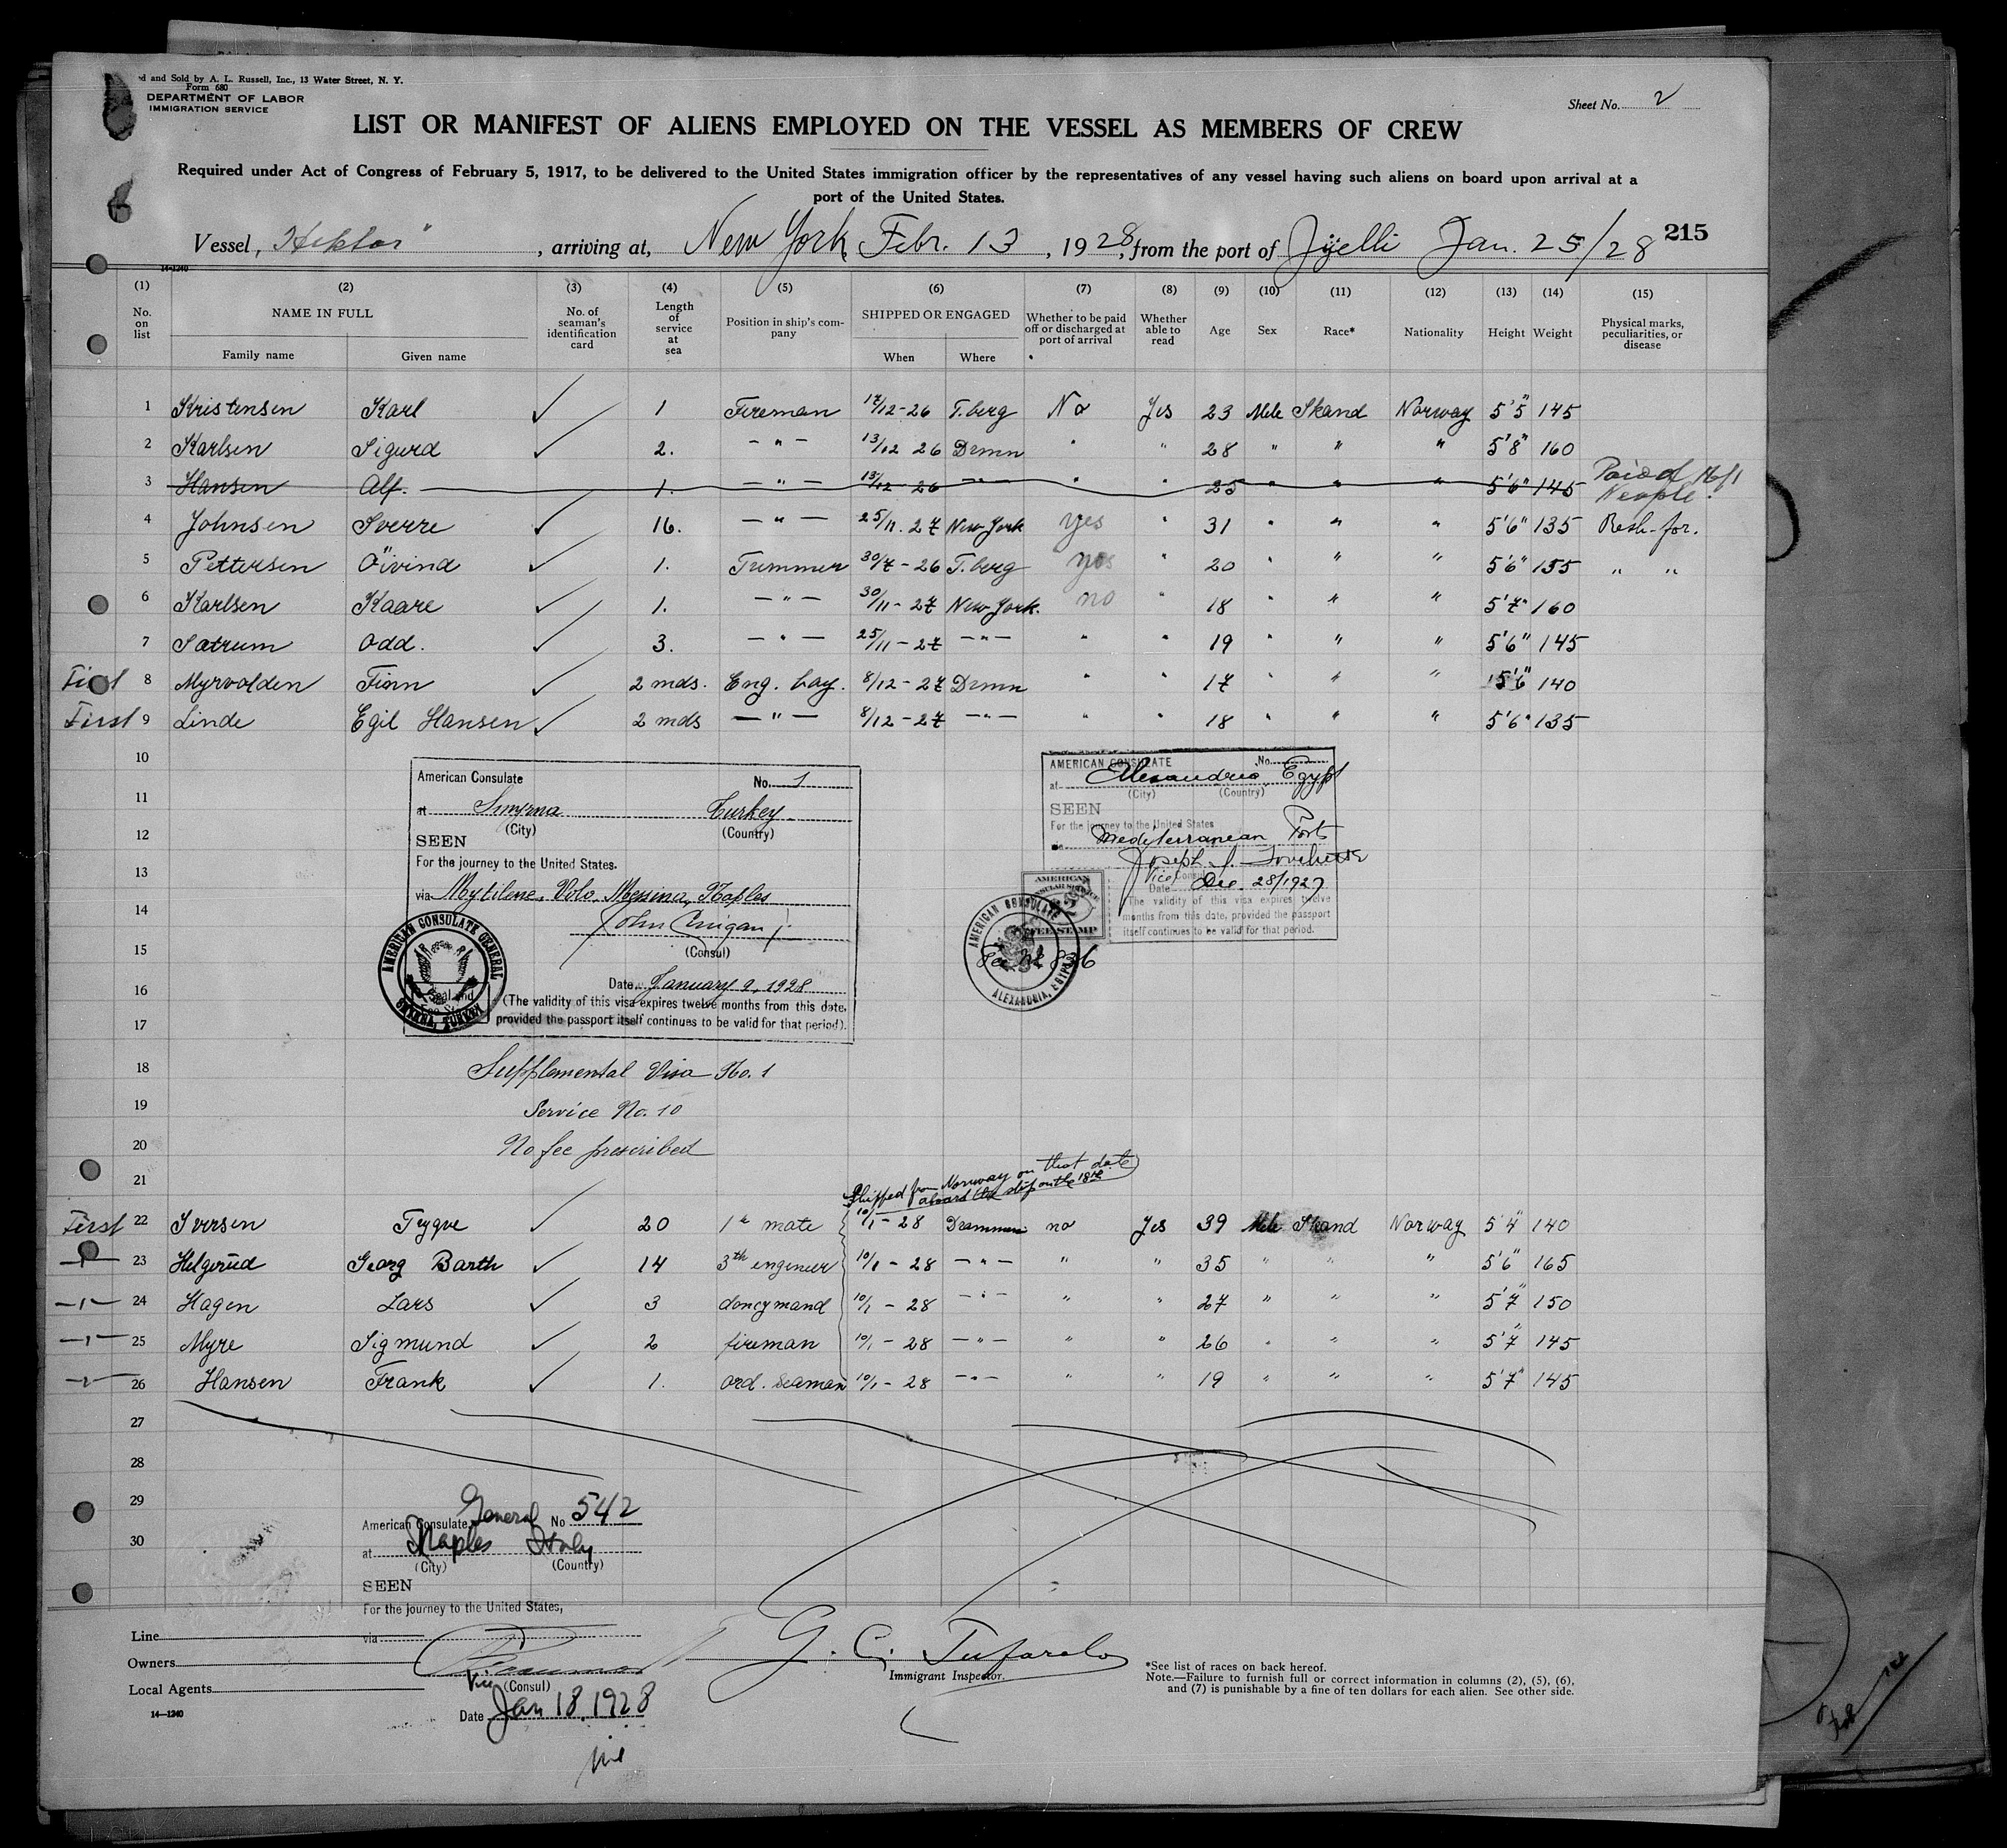 and Sold by A. L. Russell, Inc., 13 Water Street, N. Y.
Form 680
DEPARTMENT OF LABOR
IMMIGRATION SERVICE
Sheet No. 2
LIST OR MANIFEST OF ALIENS EMPLOYED ON THE VESSEL AS MEMBERS OF CREW
Required under Act of Congress of February 5, 1917, to be delivered to the United States immigration officer by the representatives of any vessel having such aliens on board upon arrival at a
port of the United States.
Vessel, "Hektor", arriving at, New York, Febr. 13, 1928, from the port of Jijelli Jan. 25/28 215
14-1240
(1) (2) (3) (4) (5) (6) (7) (8) (9) (10) (11) (12) (13) (14) (15)
No. on list NAME IN FULL Family name Given name No. of seaman's identification card Length of service at sea Position in ship's company SHIPPED OR ENGAGED When Where Whether to be paid off or discharged at port of arrival Whether able to read Age Sex Race* Nationality Height Weight Physical marks, peculiarities, or disease
1 Kristensen Karl ✓ 1 Fireman 17/12-26 T.berg No Yes 23 Mele Skand Norway 5'5" 145
2 Karlsen Sigurd ✓ 2. - " - 13/12 26 Drmn " " 28 " " " 5'8" 160
3 Hansen Alf. 1. - " - 13/12 26 - " - " " 25 " " " 5'6" 145 Paid of 16/1 Neaple.
4 Johnsen Sverre ✓ 16. - " - 25/11. 27 New York yes " 31 " " " 5'6" 135 Resh-for.
5 Pettersen Öivind ✓ 1. Trimmer 30/7 - 26 T.berg yes " 20 " " " 5'6" 155 " "
6 Karlsen Kaare ✓ 1. - " - 30/11 - 27 New York. no " 18 " " " 5'7" 160
7 Satrum Odd. ✓ 3. - " - 25/11 - 27 - " - " " 19 " " " 5'6" 145
First 8 Myrvolden Finn ✓ 2 mds. Eng. boy. 8/12 - 27 Drmn " " 17 " " " 5'6" 140
First 9 Linde Egil Hansen ✓ 2 mds - " - 8/12 - 27 - " - " " 18 " " " 5'6" 135
10
11
12
13
14
15
16
17
American Consulate No. 1
at Smyrna Turkey
(City) (Country)
SEEN
For the journey to the United States.
via Mytilene, Volo, Messina, Naples
John Corrigan Jr.
(Consul)
Date January 9, 1928
(The validity of this visa expires twelve months from this date,
provided the passport itself continues to be valid for that period).
AMERICAN CONSULATE GENERAL
SMYRNA, TURKEY
AMERICAN CONSULATE No.
at Alexandria Egypt
(City) (Country)
SEEN
For the journey to the United States
Mediterranean Ports
Joseph
Vice Consul
Date Dec. 28/1927
The validity of this visa expires twelve
months from this date, provided the passport
itself continues to be valid for that period.
AMERICAN
CONSULAR SERVICE
2
FEE STAMP
AMERICAN CONSULATE
ALEXANDRIA, EGYPT
18 Supplemental Visa No. 1
19 Service No. 10
20 No fee prescribed
21 Shipped from Norway on that date
aboard the ship on the 18th
First 22 Iversen Trygve ✓ 20 1st mate 10/1 - 28 Drammen no Yes 39 Mele Skand Norway 5'4" 140
-"- 23 Helgerud Georg Barth ✓ 14 3th engineer 10/1 - 28 - " - " " 35 " " " 5'6" 165
-"- 24 Hagen Lars ✓ 3 doncymand 10/1 - 28 - " - " " 27 " " " 5'7" 150
-"- 25 Myre Sigmund ✓ 2 fireman 10/1 - 28 - " - " " 26 " " " 5'7" 145
-"- 26 Hansen Frank ✓ 1. ord. seaman 10/1 - 28 - " - " " 19 " " " 5'7" 145
27
28
29
30
American Consulate General No 542
at Naples Italy
(City) (Country)
SEEN
For the journey to the United States,
via
Vice (Consul)
Date Jan 18, 1928
Line
Owners
Local Agents
14-1240
G. C. Tufarolo
Immigrant Inspector.
*See list of races on back hereof.
Note.—Failure to furnish full or correct information in columns (2), (5), (6),
and (7) is punishable by a fine of ten dollars for each alien. See other side.